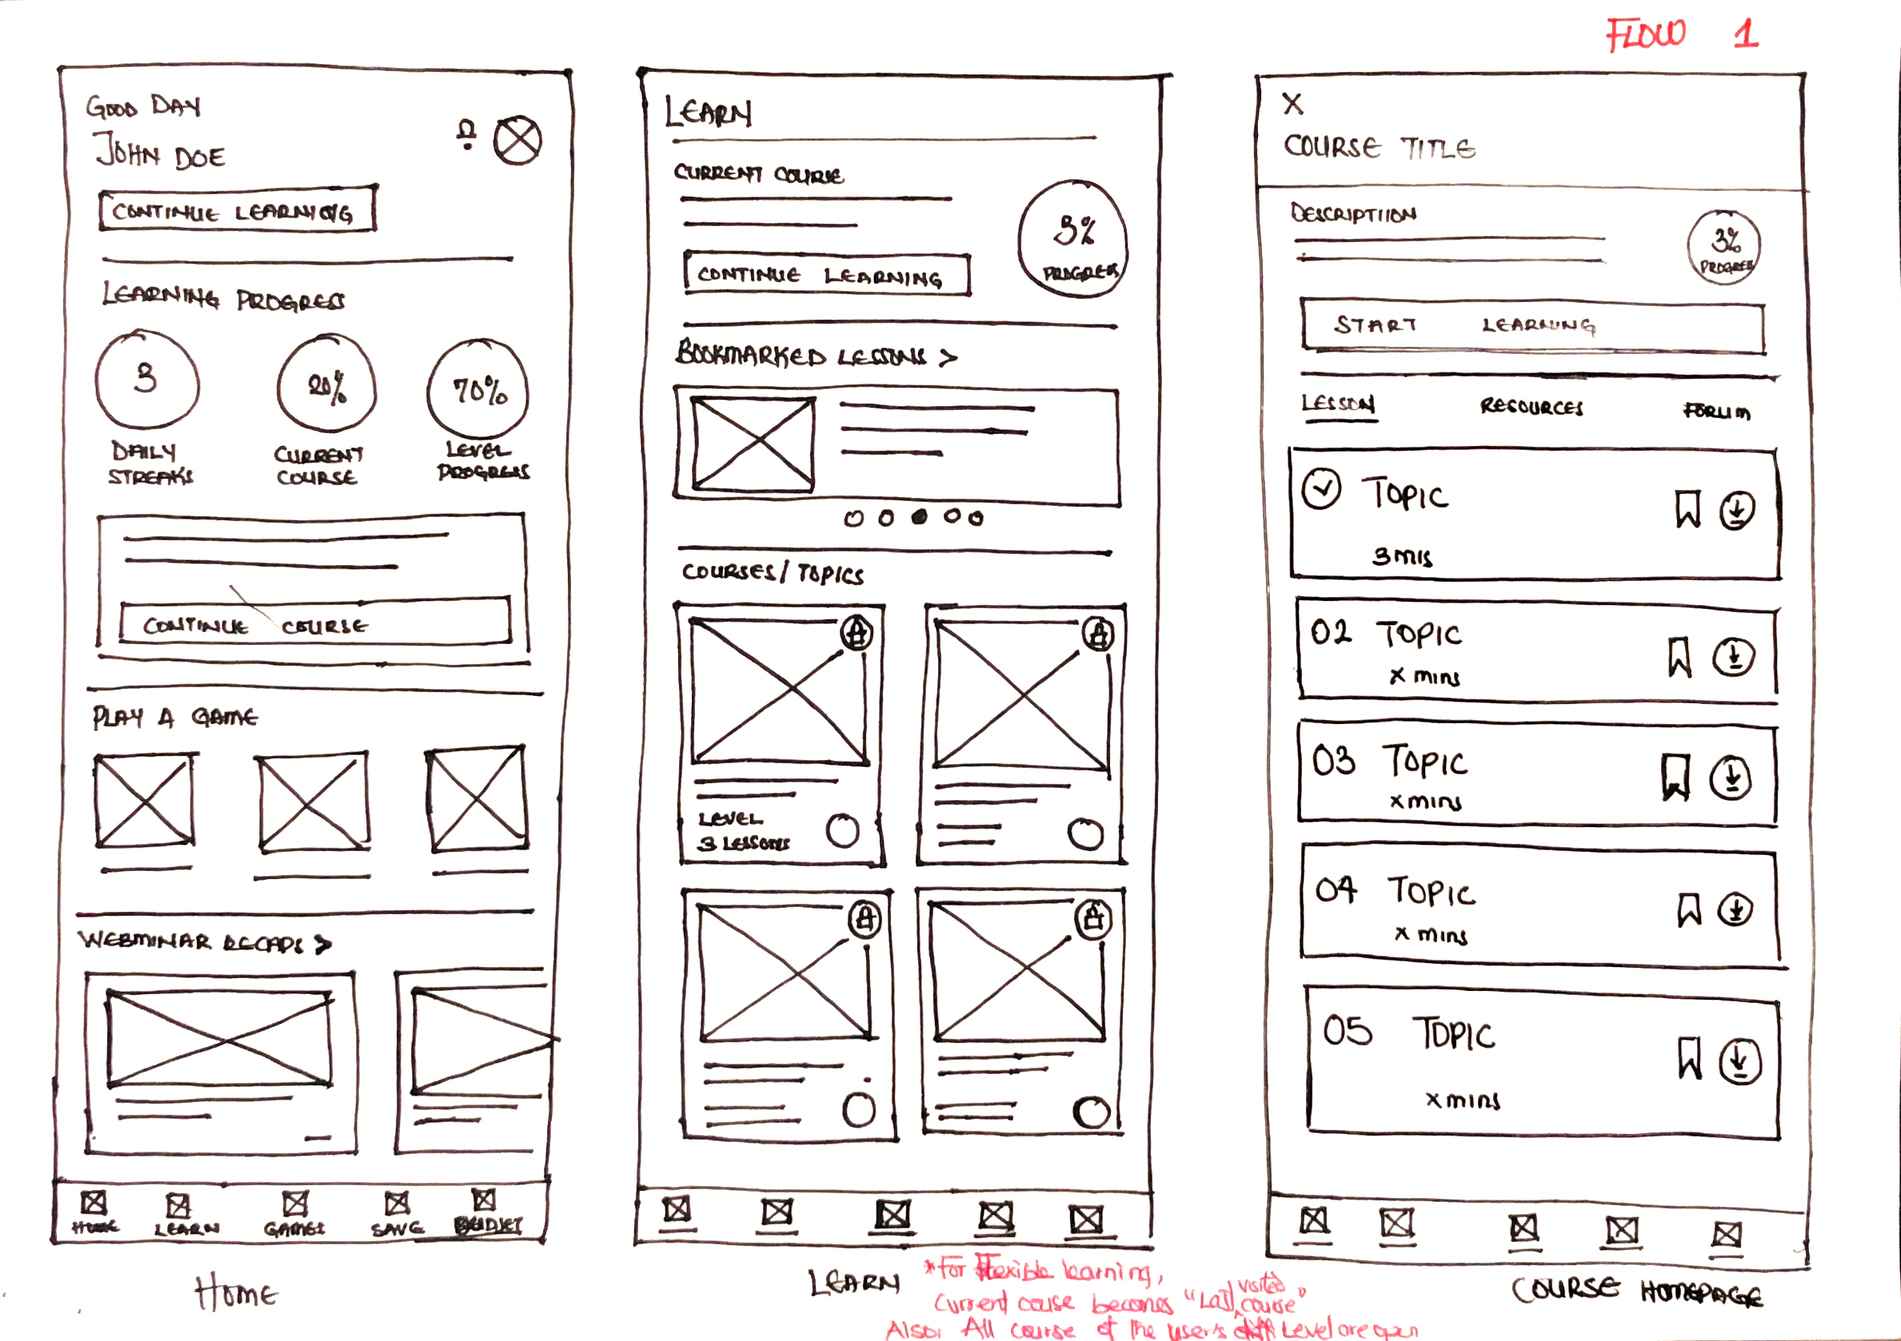 FLOW 1
GOOD DAY
JOHN DOE
CONTINUE LEARNING
LEARNING PROGRESS
3
20%
70%
DAILY STREAKS
CURRENT COURSE
LEVEL PROGRESS
CONTINUE COURSE
PLAY A GAME
WEBMINAR RECAPS >
HOME
LEARN
GAMES
SAVE
BUDGET
HOME
LEARN
CURRENT COURSE
3%
PROGRESS
CONTINUE LEARNING
BOOKMARKED LESSONS >
COURSES/TOPICS
LEVEL
3 LESSONS
LEARN
*For Flexible learning,
Current course becomes "Last visited course"
Also, All course of the user's Level are open
X
COURSE TITLE
DESCRIPTIION
3%
PROGRESS
START LEARNING
LESSON
RESOURCES
FORUM
TOPIC
3 mis
02 TOPIC
x mins
03 TOPIC
x mins
04 TOPIC
x mins
05 TOPIC
x mins
COURSE HOMEPAGE